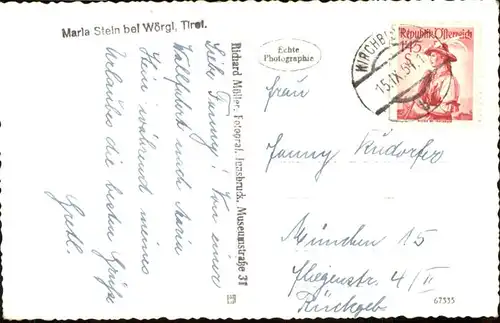 Maria Stein bei Wörgl, Tirol.
Liebe Fanny! Von einer
Wallfahrt nach Maria
Stein während meines
Urlaubes die besten Grüße
Gretl.
Richard Müller, Fotograf, Innsbruck, Museumstraße 31
Echte
Photographie
KIRCHBI
15.IX.51
Republik Österreich
1.45
Frau
Fanny Rudorfer
München 15
Fliegenstr. 4/II
Rückgeb.
67335